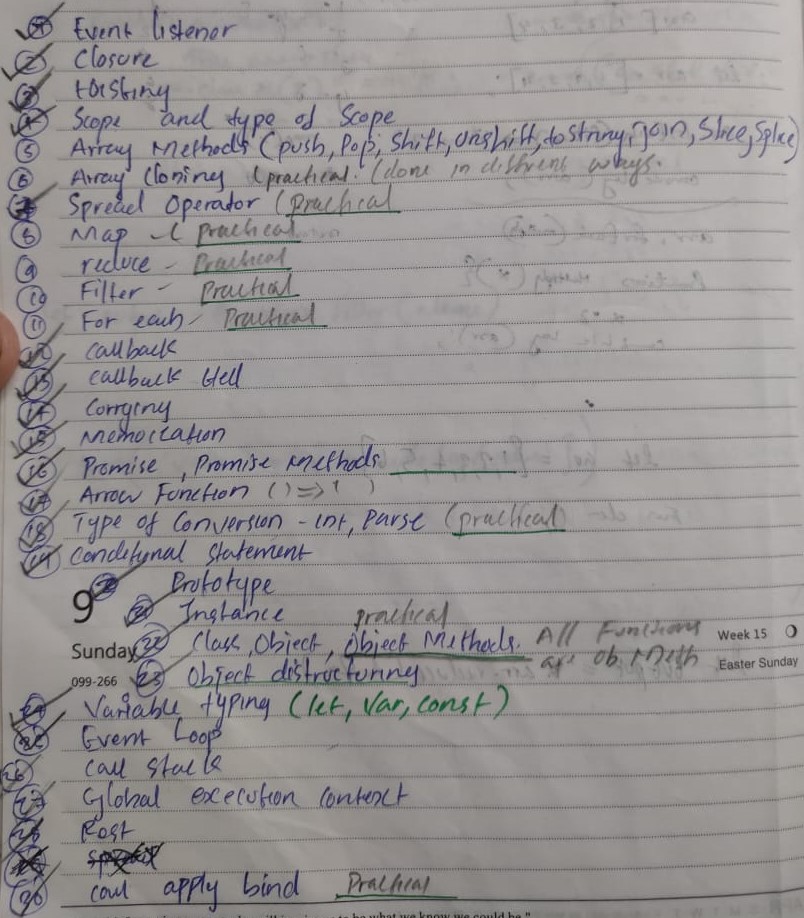 1 Event listenor
2 Closure
3 Hoisting
4 Scope and type of Scope
5 Array Methods (push, Pop, Shift, Unshift, toString, join, Slice, Splice)
6 Array Cloning (practical. (done in diffrent ways.
7 Spread Operator (Practical
8 Map - ( practical
9 reduce - Practical
10 Filter - Practical
11 For each - Practical
12 callback
13 callback Hell
14 Corrying
15 Memoization
16 Promise, Promise Methods
17 Arrow Function () => ( )
18 Type of Conversion - int, Parse (practical)
19 Conditional statement
20 Prototype
9
21 Instance practical
Sunday 22 Class, Object, Object Methods. All Functions Week 15
ar ob. Meth Easter Sunday
099-266 23 Object distructuring
24 Variable typing (let, Var, const)
25 Event Loop
26 Call Stack
27 Global execution context
28 Rest
30 call apply bind Practical
to be what we know we could be."